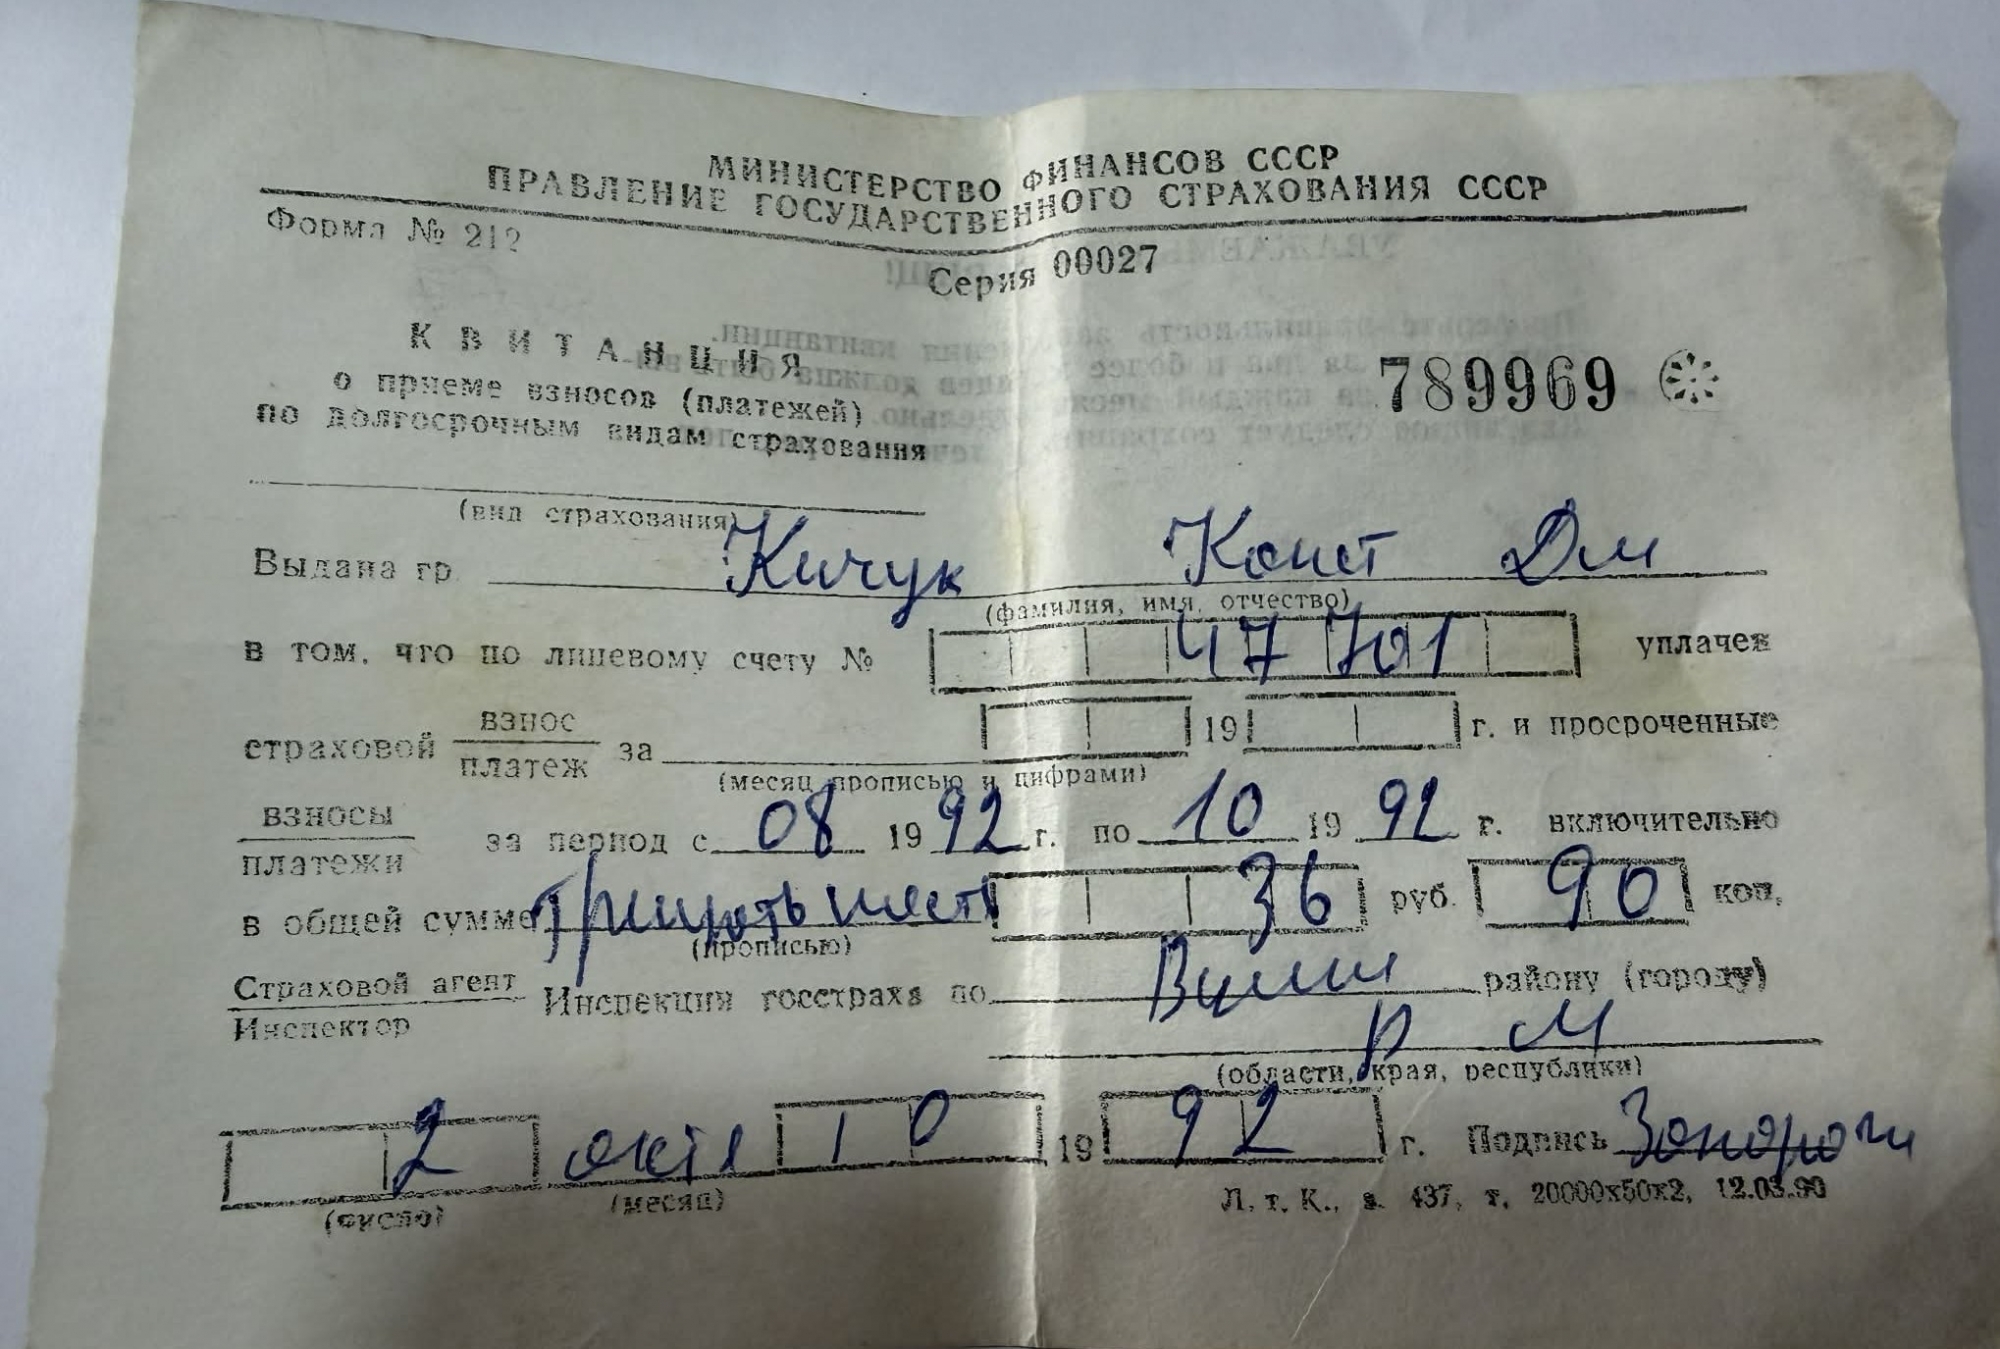 МИНИСТЕРСТВО ФИНАНСОВ СССР
ПРАВЛЕНИЕ ГОСУДАРСТВЕННОГО СТРАХОВАНИЯ СССР
Форма № 212
Серия 00027
КВИТАНЦИЯ
о приеме взносов (платежей)
по долгосрочным видам страхования
789969
(вид страхования)
Выдана гр. Кичук Конст Дм
(фамилия, имя, отчество)
в том, что по лицевому счету № 47701 уплачен
страховой взнос платеж за 19 г. и просроченные
(месяц прописью и цифрами)
взносы платежи за период с 08 1992 г. по 10 1992 г. включительно
в общей сумме тридцать шесть 36 руб. 90 коп.
(прописью)
Страховой агент Инспектор Инспекция госстраха по району (городу)
Р М
(области, края, республики)
2 октя 10 1992 г. Подпись
(число) (месяц)
Л. т. К., з. 437, т. 20000х50х2, 12.03.90